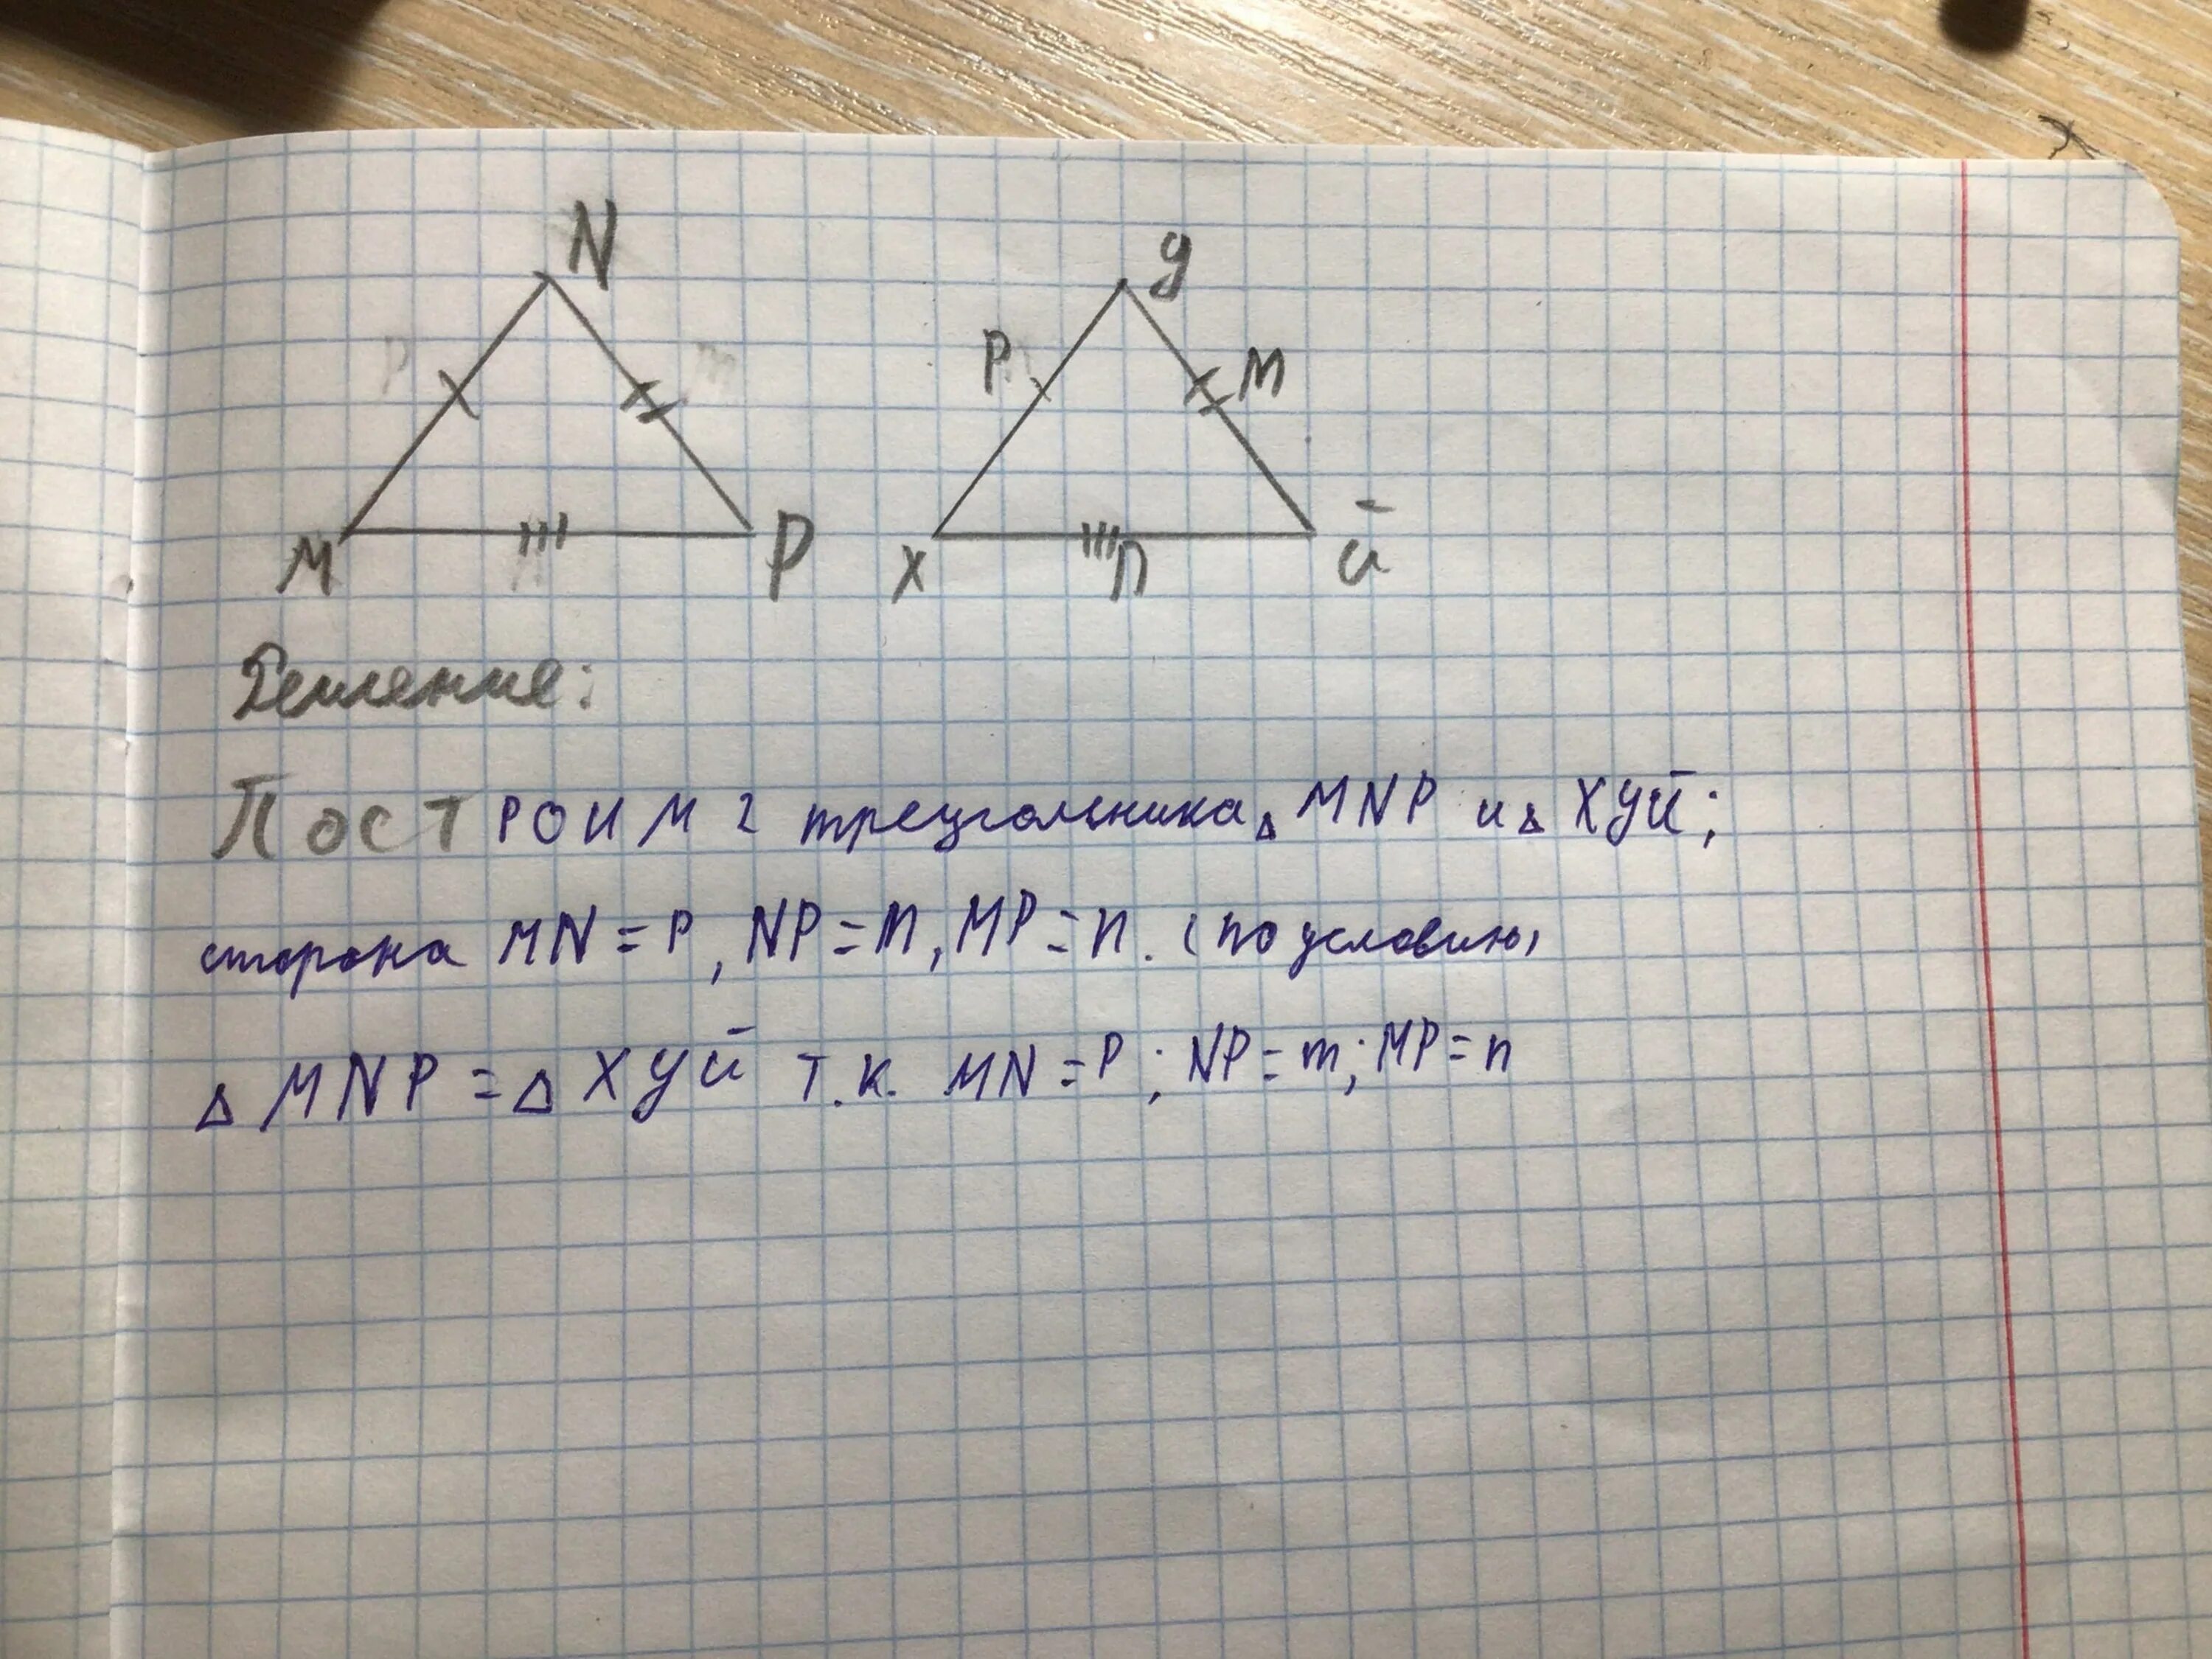 N У
P m P M
M n P X n Й
Решение:
ПОСТРОИМ 2 треугольника △ MNP и △ ХУЙ;
сторона MN = P, NP = m, MP = n. (по условию)
△ MNP = △ ХУЙ т.к. MN = P; NP = m; MP = n